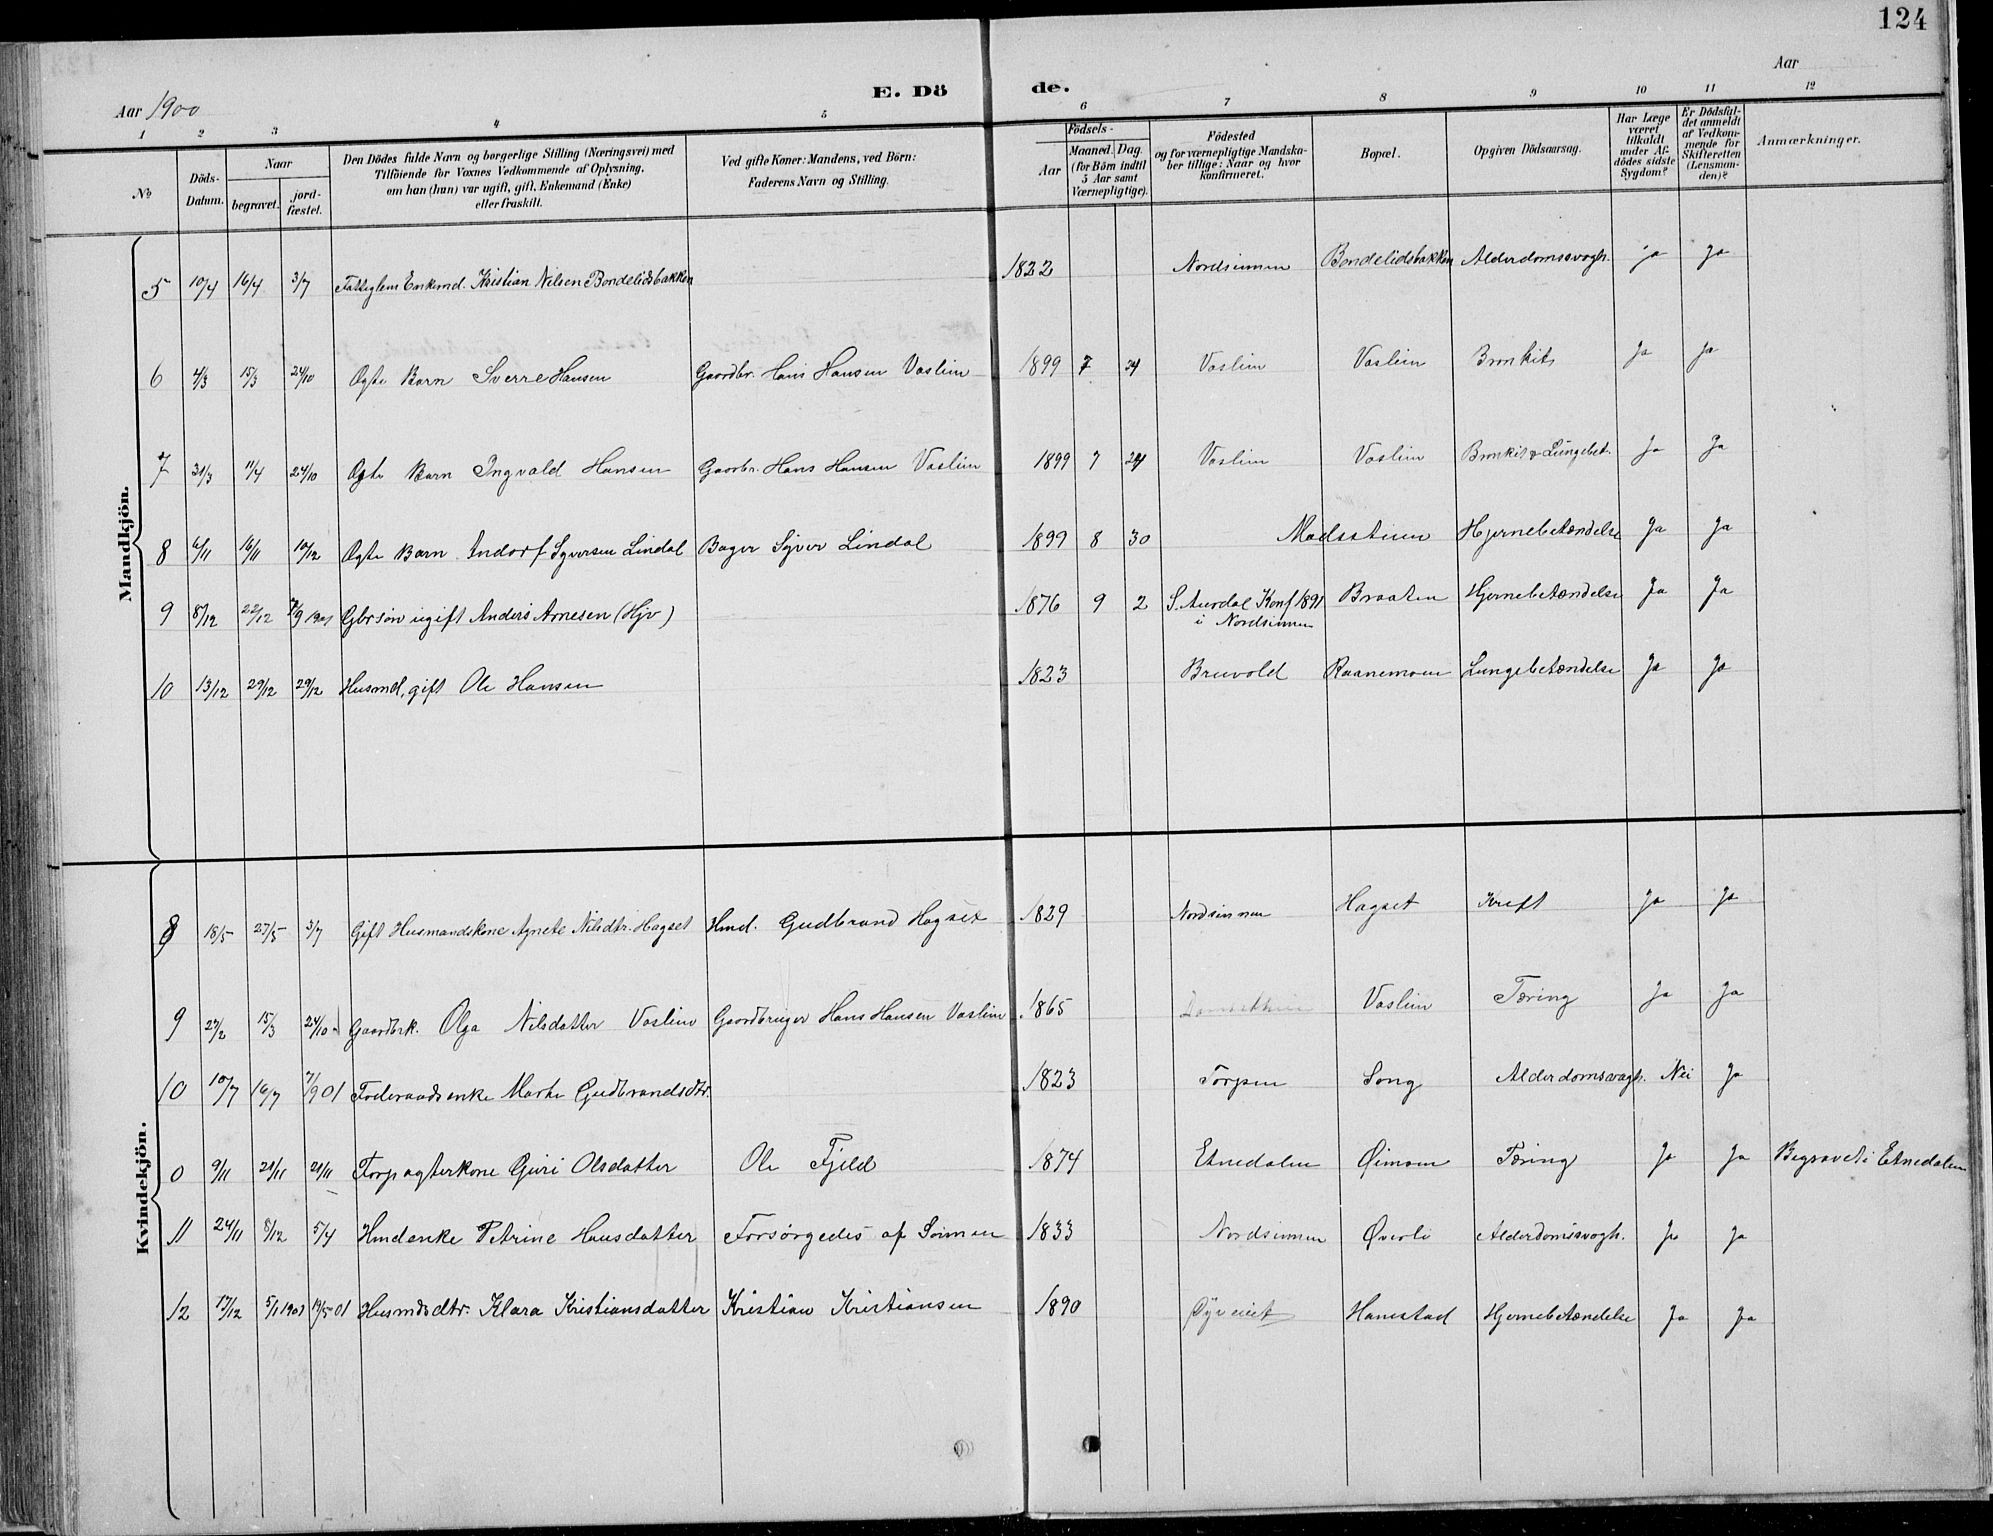 124
Aar 1900
E. Dö de.
Aar
1 2 3 4 5 6 7 8 9 10 11 12
No
Döds-Datum.
Naar
begravet.
jord-fæstet.
Den Dödes fulde Navn og borgerlige Stilling (Næringsvei) med
Tilföiende for Voxnes Vedkommende af Oplysning,
om han (hun) var ugift, gift, Enkemand (Enke)
eller fraskilt.
Ved gifte Koner: Mandens, ved Börn:
Faderens Navn og Stilling.
Födsels-
Aar
Maaned. Dag.
(for Börn indtil
5 Aar samt
Værnepligtige).
Födested
og for værnepligtige Mandska-
ber tillige: Naar og hvor
konfirmeret.
Bopæl.
Opgiven Dödsaarsag.
Har Læge
været
tilkaldt
under Af-
dödes sidste
Sygdom?
Er Dödsfal-
det anmeldt
af Vedkom-
mende for
Skifteretten
(Lensman-
den)?
Anmærkninger.
Mandkjön.
5 10/4 16/4 3/7 Fattiglem Enkemd. Kristian Nilsen Bondelidsbakken 1822 Nordsinnen Bondelidsbakken Alderdomssvagh. Ja Ja
6 4/3 15/3 24/10 Ægte Barn Sverre Hansen Gaardbr. Hans Hansen Vaslien 1899 7 24 Vaslien Vaslien Bronkit Ja Ja
7 31/3 11/4 24/10 Ægte Barn Ingvald Hansen Gaardbr. Hans Hansen Vaslien 1899 7 24 Vaslien Vaslien Bronkit & Lungebet. Ja Ja
8 6/11 16/11 10/12 Ægte Barn Andorf Syversen Lindal Bager Syver Lindal 1899 8 30 Madsstuen Hjernebetændelse Ja Ja
9 8/12 22/12 7/9 1901 Gbrsøn ugift Anders Arnesen (Hjv) 1876 9 2 S. Aurdal Konf 1891 Braaten Hjernebetændelse Ja Ja
i Nordsinnen
10 13/12 29/12 29/12 Husmd, gift Ole Hansen 1823 Bruvold Raanemoen Lungebetændelse Ja Ja
Kvindekjön.
8 18/5 27/5 3/7 Gift Husmandskone Agnete Nilsdtr. Hagset Hmd. Gudbrand Hagset 1829 Nordsinnen Hagset Kreft Ja Ja
9 27/2 15/3 24/10 Gaardbrk. Olga Nilsdatter Vaslien Gaardbruger Hans Hansen Vaslien 1865 Vaslien Tæring Ja Ja
10 10/7 16/7 7/9 01 Føderaadsenke Marthe Gudbrandsdtr. 1823 Torpen Song Alderdomsvagh. Nei Ja
0 9/11 21/11 21/11 Forpagterkone Guri Olsdatter Ole Fjeld 1874 Etnedalen Øimoen Tæring Ja Ja Begravet i Etnedalen
11 24/11 8/12 5/4 Hmdenke Petrine Hansdatter Forsørgedes af Sønnen 1833 Nordsinnen Øverli Alderdomssvagh. Ja Ja
12 17/12 5/1 1901 19/5 01 Husmdsdtr. Klara Kristiansdatter Kristian Kristiansen 1890 Hanestad Hjernebetændelse Ja Ja